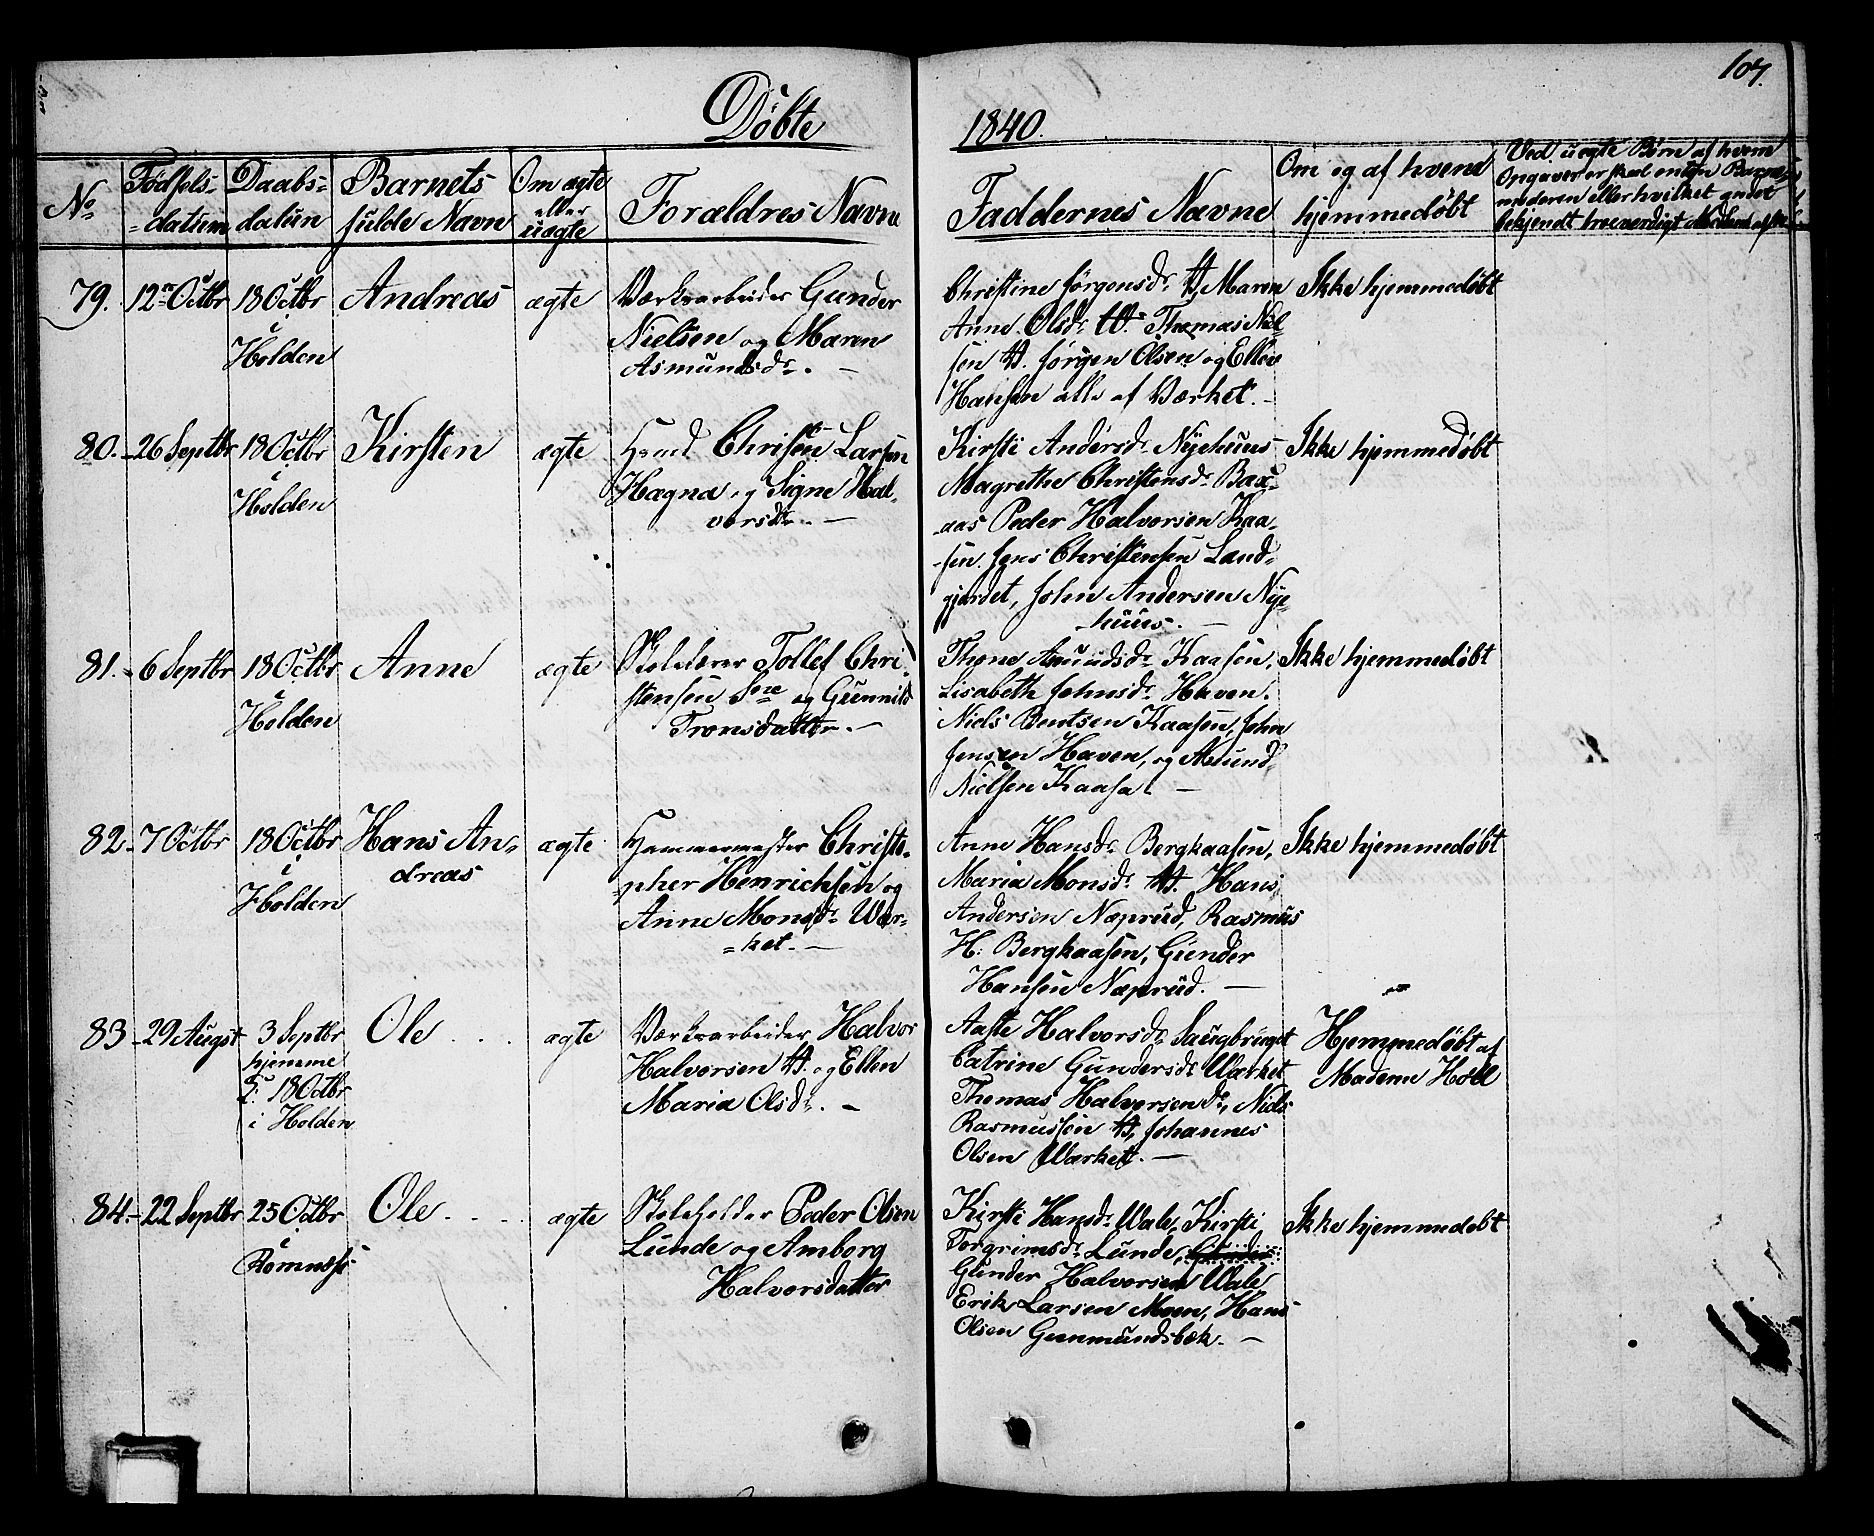 107.
Döbte 1840.
No
Födsels-
=datum
Daabs=
datum
Barnets
fulde Navn
Om ægte
eller
uægte
Forældres Navne
Faddernes Navne
Om og af hvem
hjemmedøbt
Ved uægte Børn af hvem
Opgaver er skeet enten Barnets
moderen eller hvilket andet
bekjendt troeværdigt
79. 12te Octbr 18 Octbr Andreas ægte
i
Holden
Værksarbeider Gunder
Nielsen og Maren
Asmundsdr. —
Christine Jörgensdr. W, Maren
Anne Olsdr. W. Thomas Niel=
sen W. Jörgen Olsen og Ellev
Hansen alle af Værket. -
Ikke hjemmedøbt
80. - 26 Septbr 18 Octbr Kirsten ægte
i
Holden
Huusmd Christen Larsen
Hægna og Signe Hal-
vorsdtr. —
Kirsti Andersdr. Nyehuus
Magrethe Christensdr. Baa-
-aas Peder Halvorsen Kaa-
-sen. Jens Christensen Land=
gjerdet, John Andersen Nye=
huus. —
Ikke hjemmedøbt
81. - 6 Septbr 18 Octbr Anne ægte
i
Holden
Skolelærer Tollef Chri-
stensen Sore og Gunnild
Tronsdatter. —
Thone Amundsdr. Kaasen,
Lisabeth Johnsdr. Haven.
Niels Bentsen Kaasen, John
Jensen Haven, og Amund
Nielsen Kaasa. —
Ikke hjemmedøbt
82 - 7 Octbr 18 Octbr Hans An= ægte
dreas
i
Holden
Hammermester Christo-
=pher Henrichsen og
Anne Monsdr. Vær-
=ket. —
Anne Hansdr. Bergkaasen,
Maria Monsdr. W. Hans
Andersen Næprud, Rasmus
H: Bergkaasen, Gunder
Hansen Næprud. —
Ikke hjemmedøbt
83 - 29 August 3 Septbr Ole . . . ægte
hjemme
18 Octbr
i Holden
Værksarbeider Halvor
Halvorsen W. og Ellen
Maria Olsdr. —
Aaste Halvorsdr. Saugbruget
Catrine Gundersdr. Værket
Thomas Halvorsen do, Niels
Rasmussen W, Johannes
Olsen Værket. —
Hjemmedøbt af
Madame Holl
84. - 22 Septbr 25 Octbr Ole . . . ægte
i
Romnæs
Skoleholder Peder Olsen
Lunde og Amborg
Halvorsdatter
Kirsti Hansdr. Wale, Kirsti
Torgrimsdr. Lunde,
Gunder Halvorsen Wale
Erik Larsen Moen, Hans
Olsen Gunmundsbæk. —
Ikke hjemmedøbt